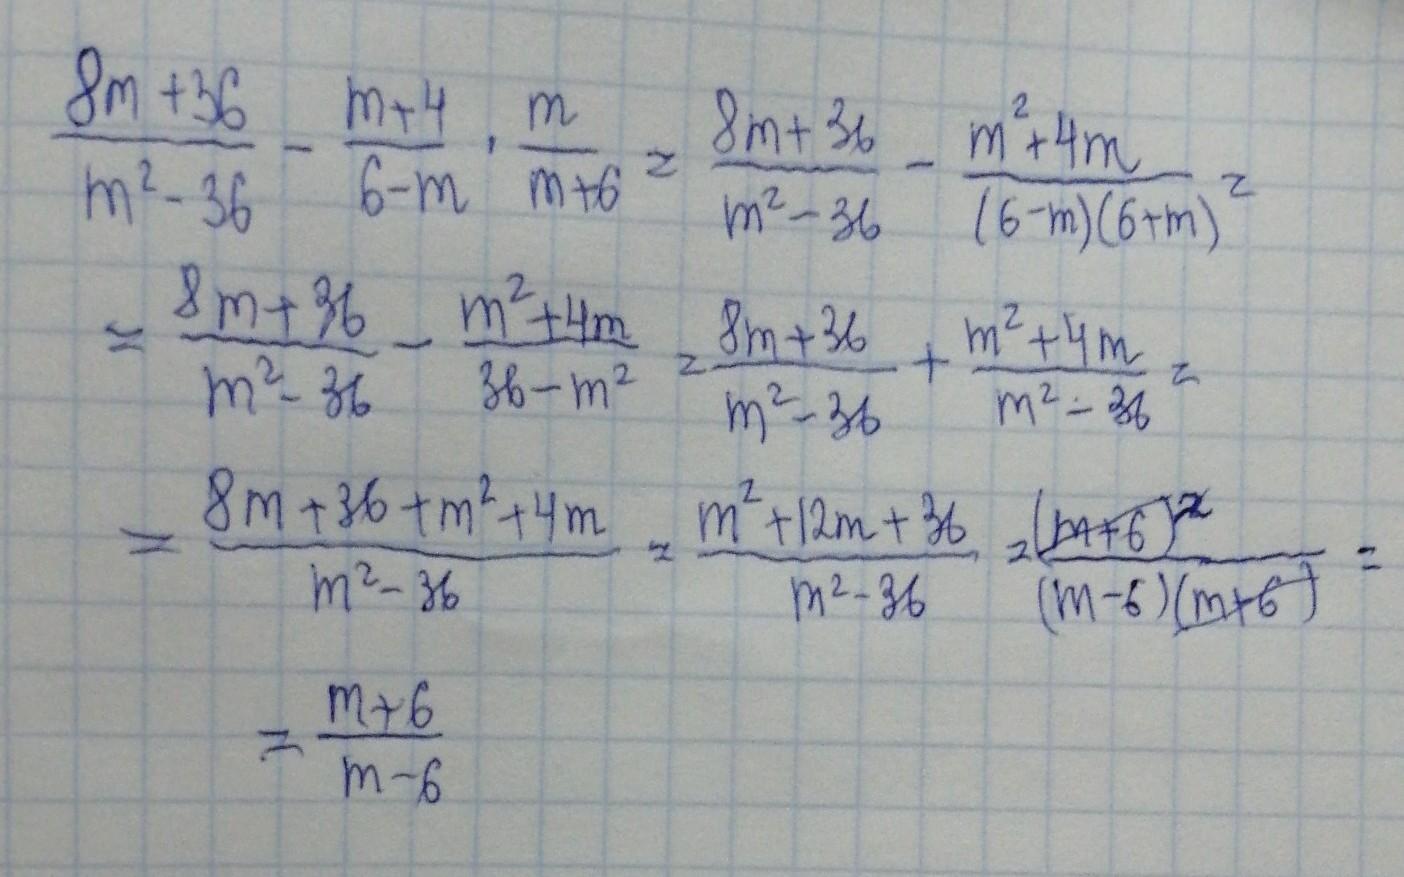 \frac{8m+36}{m^2-36} - \frac{m+4}{6-m} \cdot \frac{m}{m+6} = \frac{8m+36}{m^2-36} - \frac{m^2+4m}{(6-m)(6+m)} =
= \frac{8m+36}{m^2-36} - \frac{m^2+4m}{36-m^2} = \frac{8m+36}{m^2-36} + \frac{m^2+4m}{m^2-36} =
= \frac{8m+36+m^2+4m}{m^2-36} = \frac{m^2+12m+36}{m^2-36} = \frac{(m+6)^2}{(m-6)(m+6)} =
= \frac{m+6}{m-6}